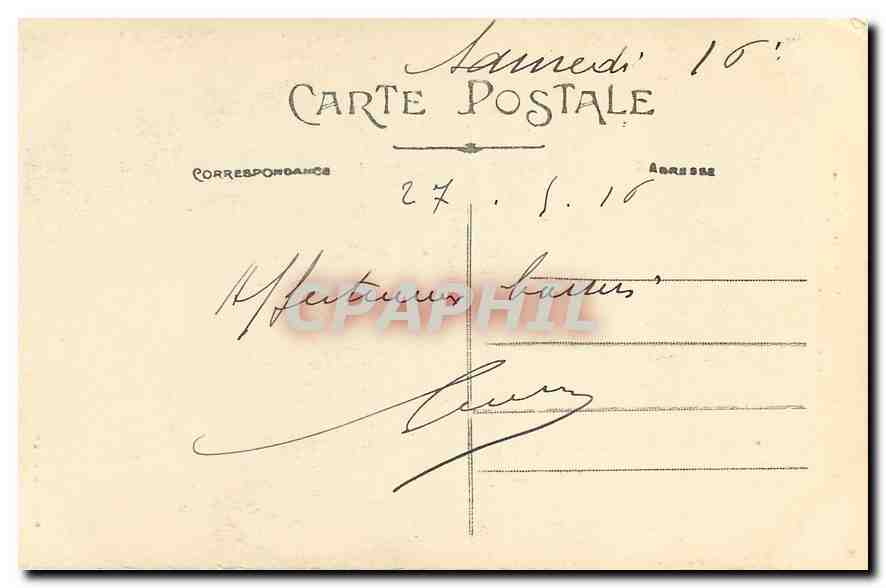 Samedi 16
CARTE POSTALE
CORRESPONDANCE ADRESSE
27.5.16
Affectueux baisers
CPAPHIL